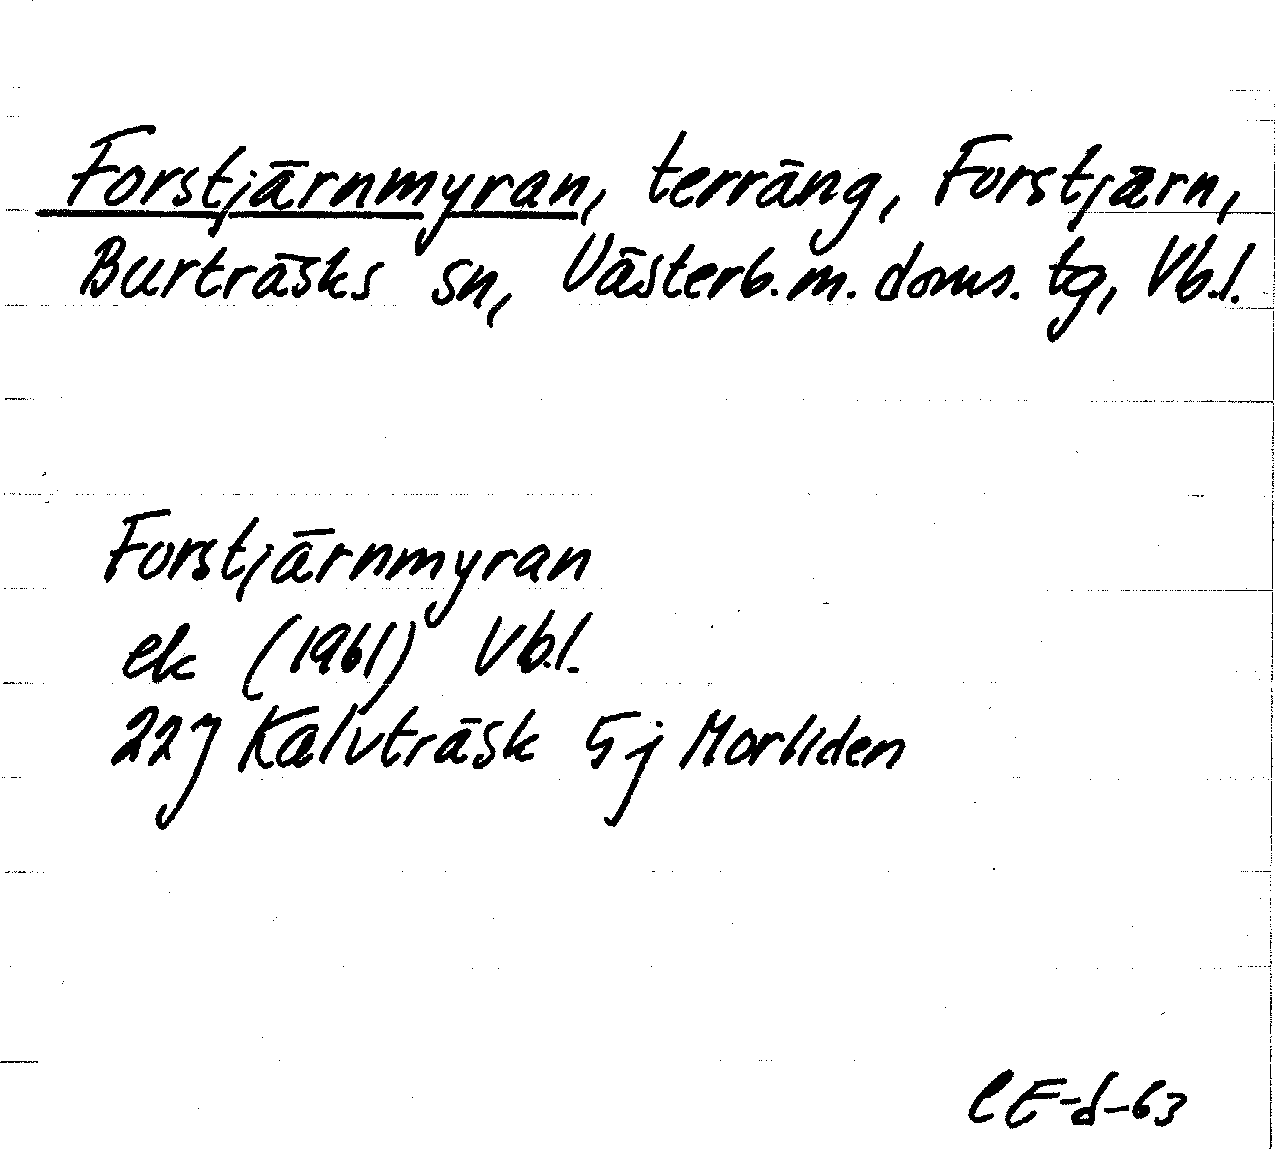 Forstjärnmyran, terräng, Forstjärn,
Burträsks sn, Västerb.m. doms. tg, Vb.l.
Forstjärnmyran
ek (1961) Vb.l.
22J Kalvträsk 5j Morliden
CE-d-63